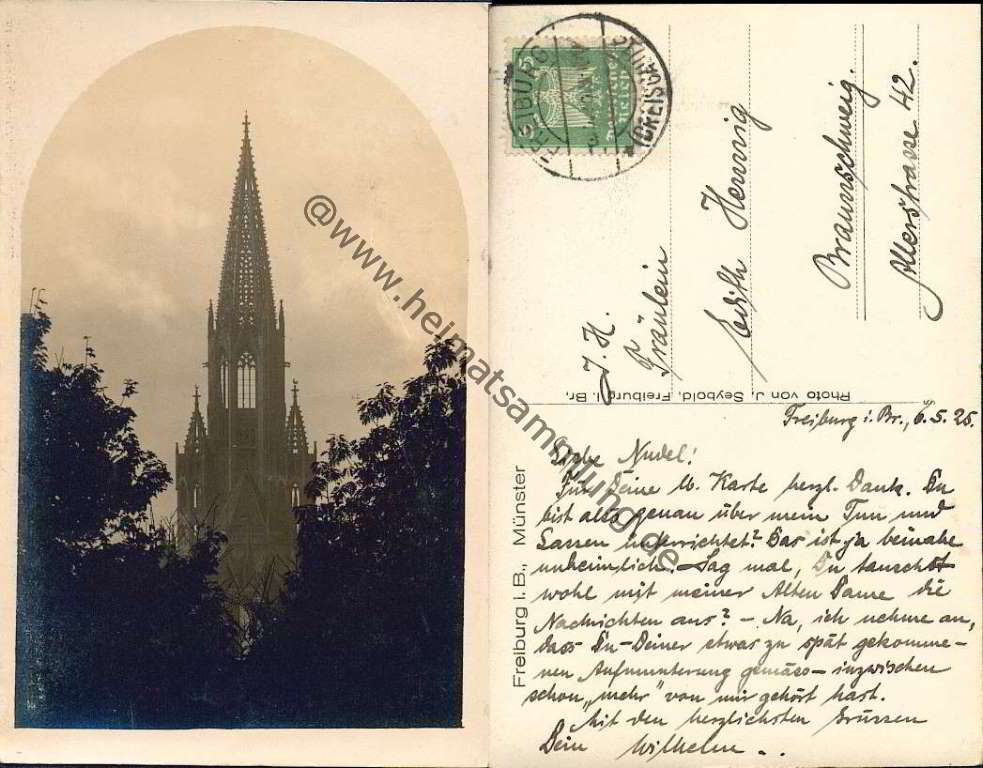 @www.heimatsammlung.de
FREIBURG
(BREISGAU)
5
DEUTSCHES REICH
I. H.
Fräulein
Edith Hennig
Braunschweig.
Allerstrasse 42.
Photo von J. Seybold, Freiburg i. Br.
Freiburg I. B., Münster
Freiburg i. Br., 6.5.25.
Liebe Nudel!
Für Deine lb. Karte herzl. Dank. Du
bist also genau über mein Tun und
Lassen unterrichtet? Das ist ja beinahe
unheimlich! Sag mal, Du tauschst
wohl mit meiner Alten Dame die
Nachrichten aus? – Na, ich nehme an,
dass Du – Deiner etwas zu spät gekomme-
nen Aufmunterung gemäss – inzwischen
schon „mehr" von mir gehört hast.
Mit den herzlichsten Grüssen
Dein Wilhelm . .